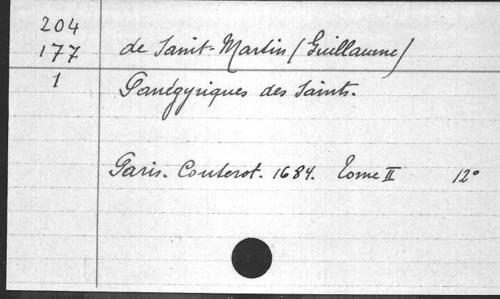 204
177 de Sanit-Martin (Guillaume)
1 Panégyriques des Saints.
Paris. Couterot. 1684. Tome II 12°